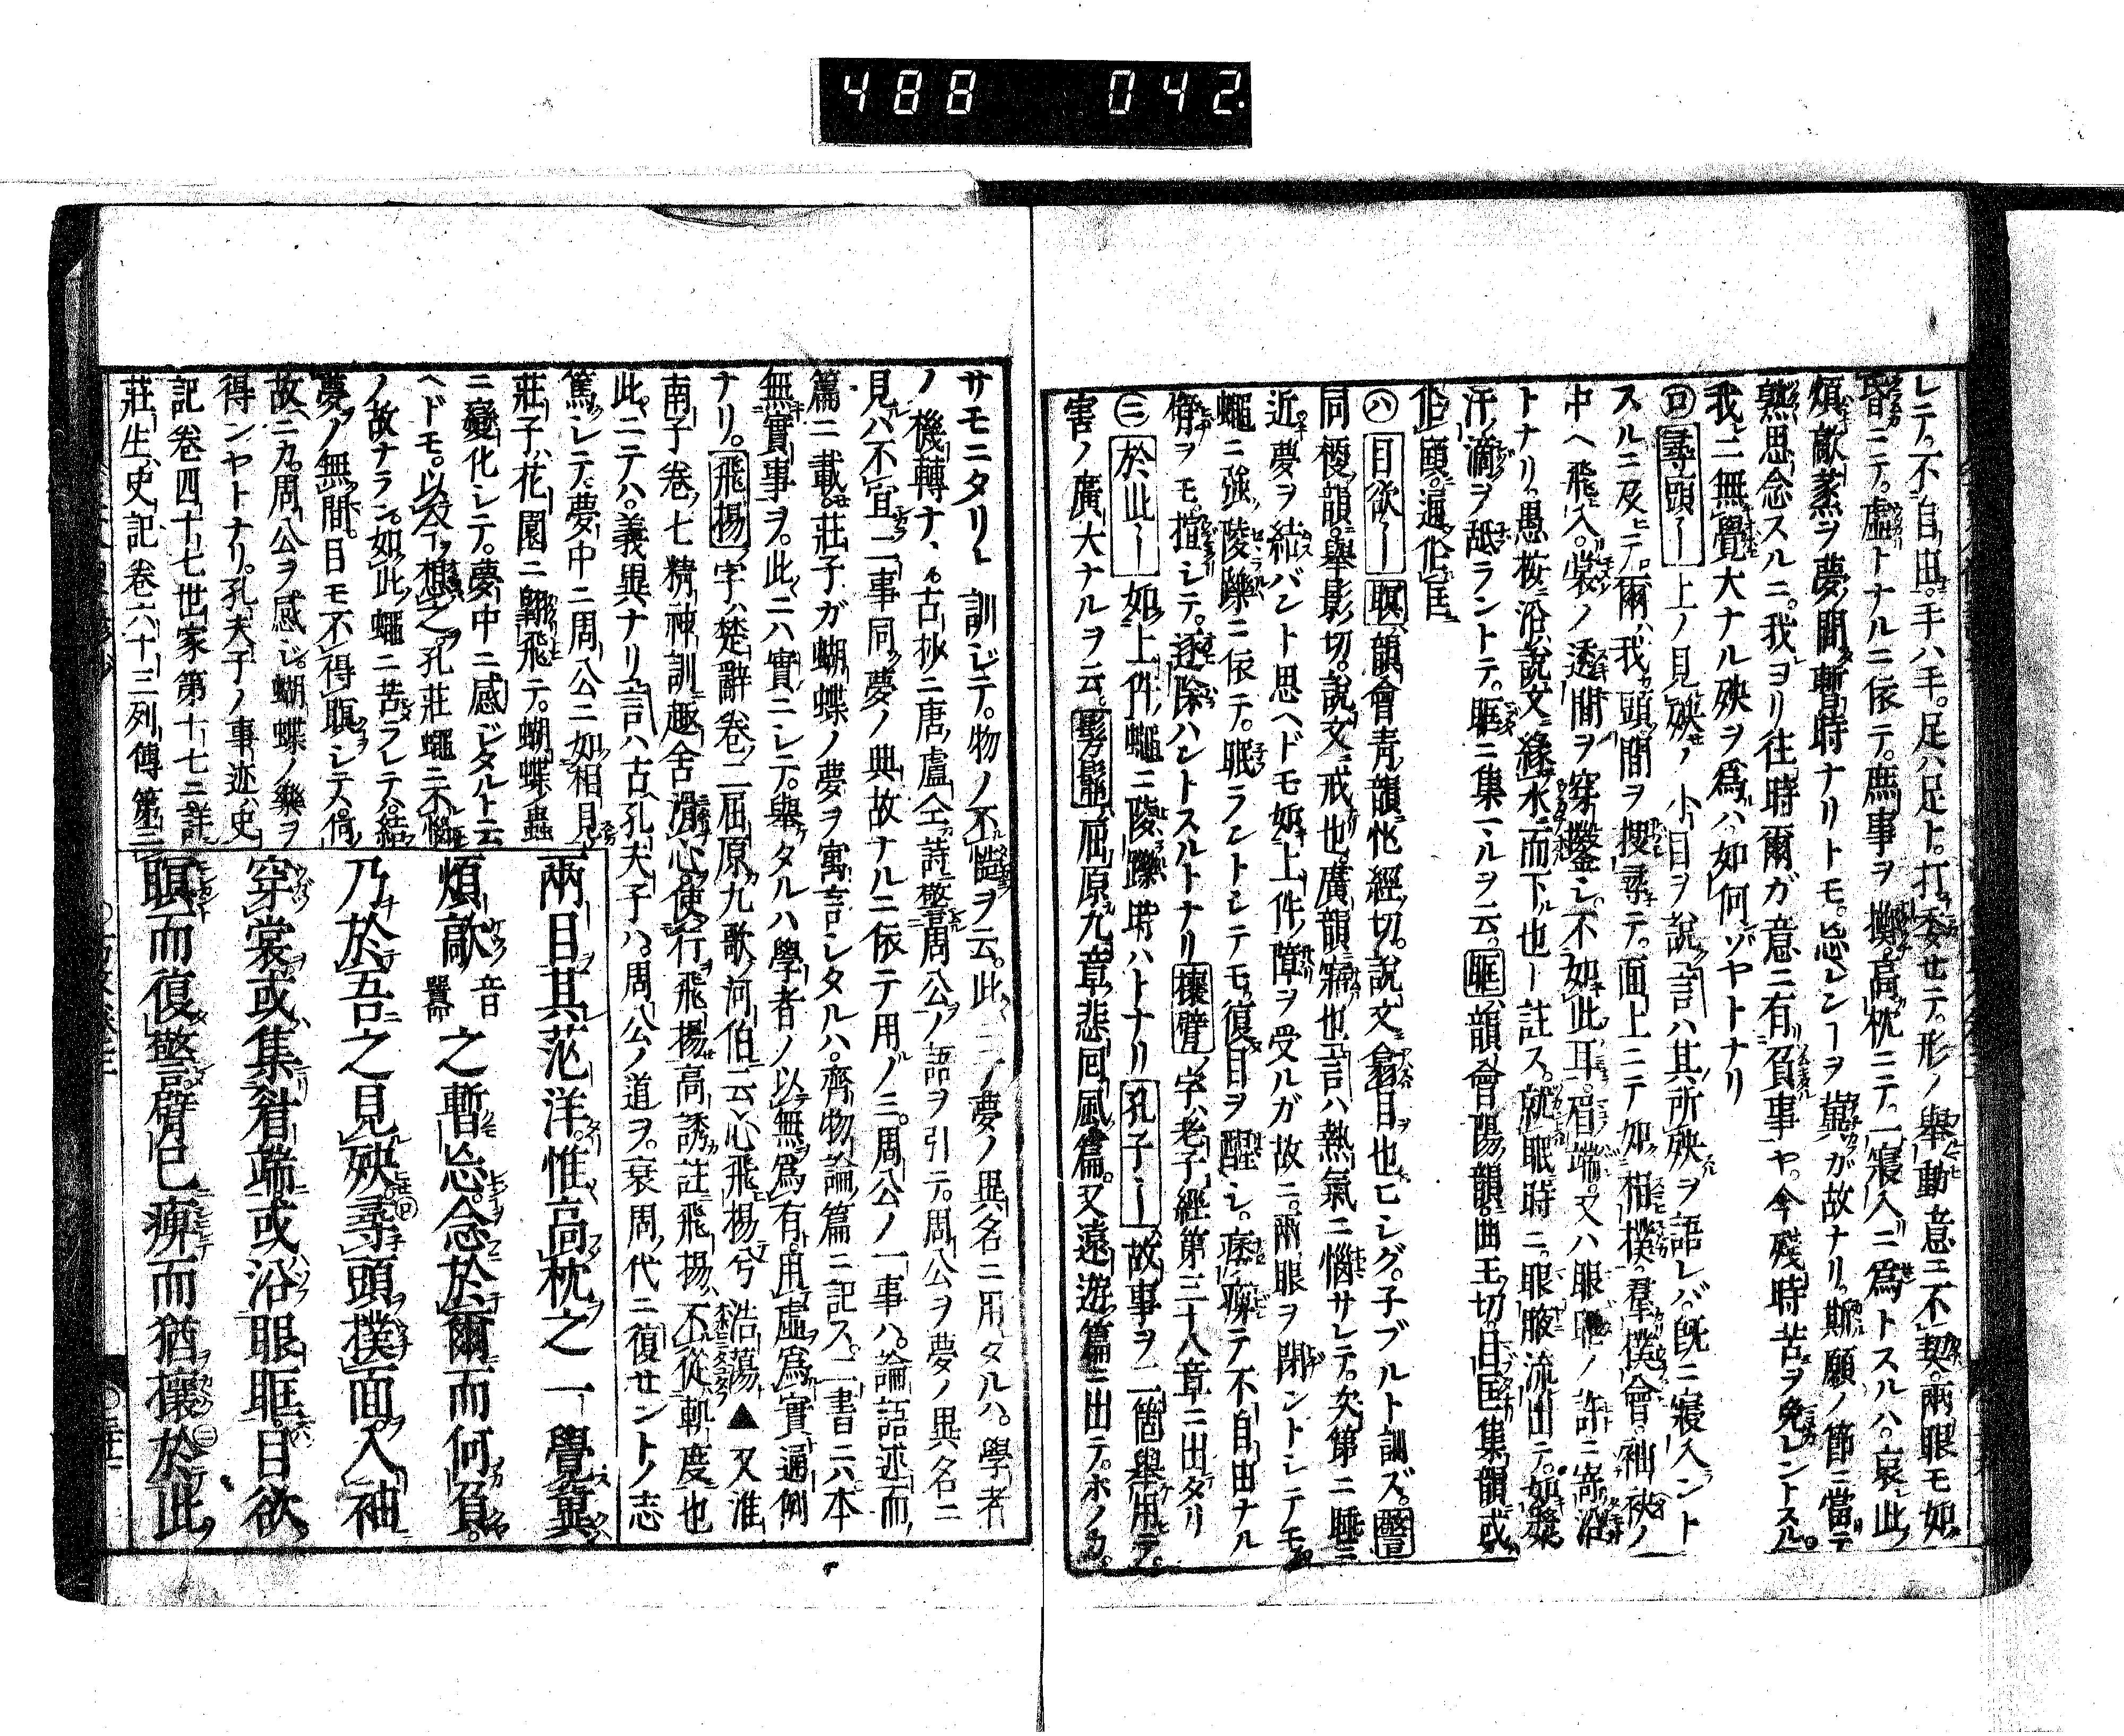 488 042
レテ。不自由。手ハ手。足ハ足ト。打委セテ。形ノ擧動意ニ不契。兩眼モ如
昏ニテ。虛トナルニ依テ。無事ヲ揆。高枕ニテ。一寢入ニ爲トスルハ。哀此
煩歊蒸ヲ夢ノ間暫時ナリトモ。忘レンヿヲ冀ガ故ナリ。斯願ノ節ニ當テ
熟思念スルニ。我ヨリ往時爾ガ意ニ有負事ヤ。今殘時苦ヲ免レントスル。
我ニ無覺大ナル殃ヲ爲ハ。如何ゾヤトナリ
㋺尋頭ー 上ノ見殃ノ小目ヲ說。言ハ其所殃ヲ語レバ。既ニ寢入ント
スルニ及ニテ。爾ハ我頭ノ間ヲ搜尋テ。面上ニテ如相撲。羣撲會。袖袂ノ
中ヘ飛入。裳ノ透間ヲ穿鑿シ。不如此耳。眉端。又ハ眼ノ許ニ寄沿
トナリ。愚按沿說文緣水而下也ー註ス。就眠時ニ。眼脓流出テ。如漿
汗ノ滴ヲ舐ラントテ。眶ニ集ールヲ云。眶韻會陽韻。曲王切。目匡集韻或
㋩目欲ー瞑韻會靑韻忙經切。說文翕目也ヒシグ。子ブルト訓ズ。警
同梗韻。擧影切。說文戒也。廣韻寤也言ハ熱氣ニ惱サレテ。次第ニ睡ニ
近。夢ヲ結バント思ヘドモ如上件。障ヲ受ルガ故ニ。兩眼ヲ閉ントレテモ
蠅ニ陵躒ニ依テ。眠ラントレテモ。復目ヲ醒シ。痿痹テ不自由ナル
臂ヲモ。揎レテ。逐除ハントスルトナリ攘臂ノ字ハ老子經第三十八章ニ出タリ
㊁於此ー如上件。蠅ニ陵躒時ハトナリ孔子ー故事ヲ二箇擧用テ。
害ノ廣大ナルヲ云。髣髴ハ屈原九章悲囘風篇。又遠遊篇ニ出テ。ホノカ。
サモニタリト訓ジテ。物ノ不慥ヲ云。此二ノ夢ノ異名ニ用タルハ。學者
ノ機轉ナル。古抄ニ唐盧仝詩驚周公ノ語ヲ引テ。周公ヲ夢ノ異名ニ
見ハ不宜。二事同夢ノ典故ナルニ依テ用ノミ。周公ノ一事ハ。論語述而
篇ニ載。莊子ガ蝴蝶ノ夢ヲ寓言シタルハ。齊物論篇ニ記ス。二書ニ六本
無實事ヲ。此ニハ實ニレテ。擧タルハ學者ノ以無爲有。用虛爲實通例
ナリ。飛揚ノ字ハ楚辭卷二屈原九歌河伯云心飛揚兮浩蕩▲又淮
南子卷七精神訓趣舍滑心。使行飛揚。高誘註飛揚不從軌度也
此ニテハ。義異ナリ言ハ古孔夫子ハ。周公ノ道ヲ。衰周ノ代ニ復セントノ志
篤レテ。夢中ニ周公ニ如相見。
莊子ハ花園ニ翺飛テ。蝴蝶ノ蟲
ニ變化レテ。夢中ニ感ジタルト云
ヘドモ。以今想之。孔莊蠅ニ不惱
ノ故ナラン。如此蠅ニ苦ラレテ。結
夢ノ無間。目モ不得瞑レテハ。何
故ニカ。周公ヲ感ジ。蝴蝶ノ樂ヲ
得ンヤトナリ。孔夫子ノ事迹ハ史
記卷四十七世家第十七ニ詳
莊生ハ史記卷六十三列傳第三
兩目其茫洋。惟高枕之一覺冀
煩歊音囂之暫忘。念於爾而何負。
乃於吾之見殃。尋頭撲面。入袖
穿裳。或集眉端。或沿眼眶。目欲
瞑而復警。臂已痹而猶攘。於此